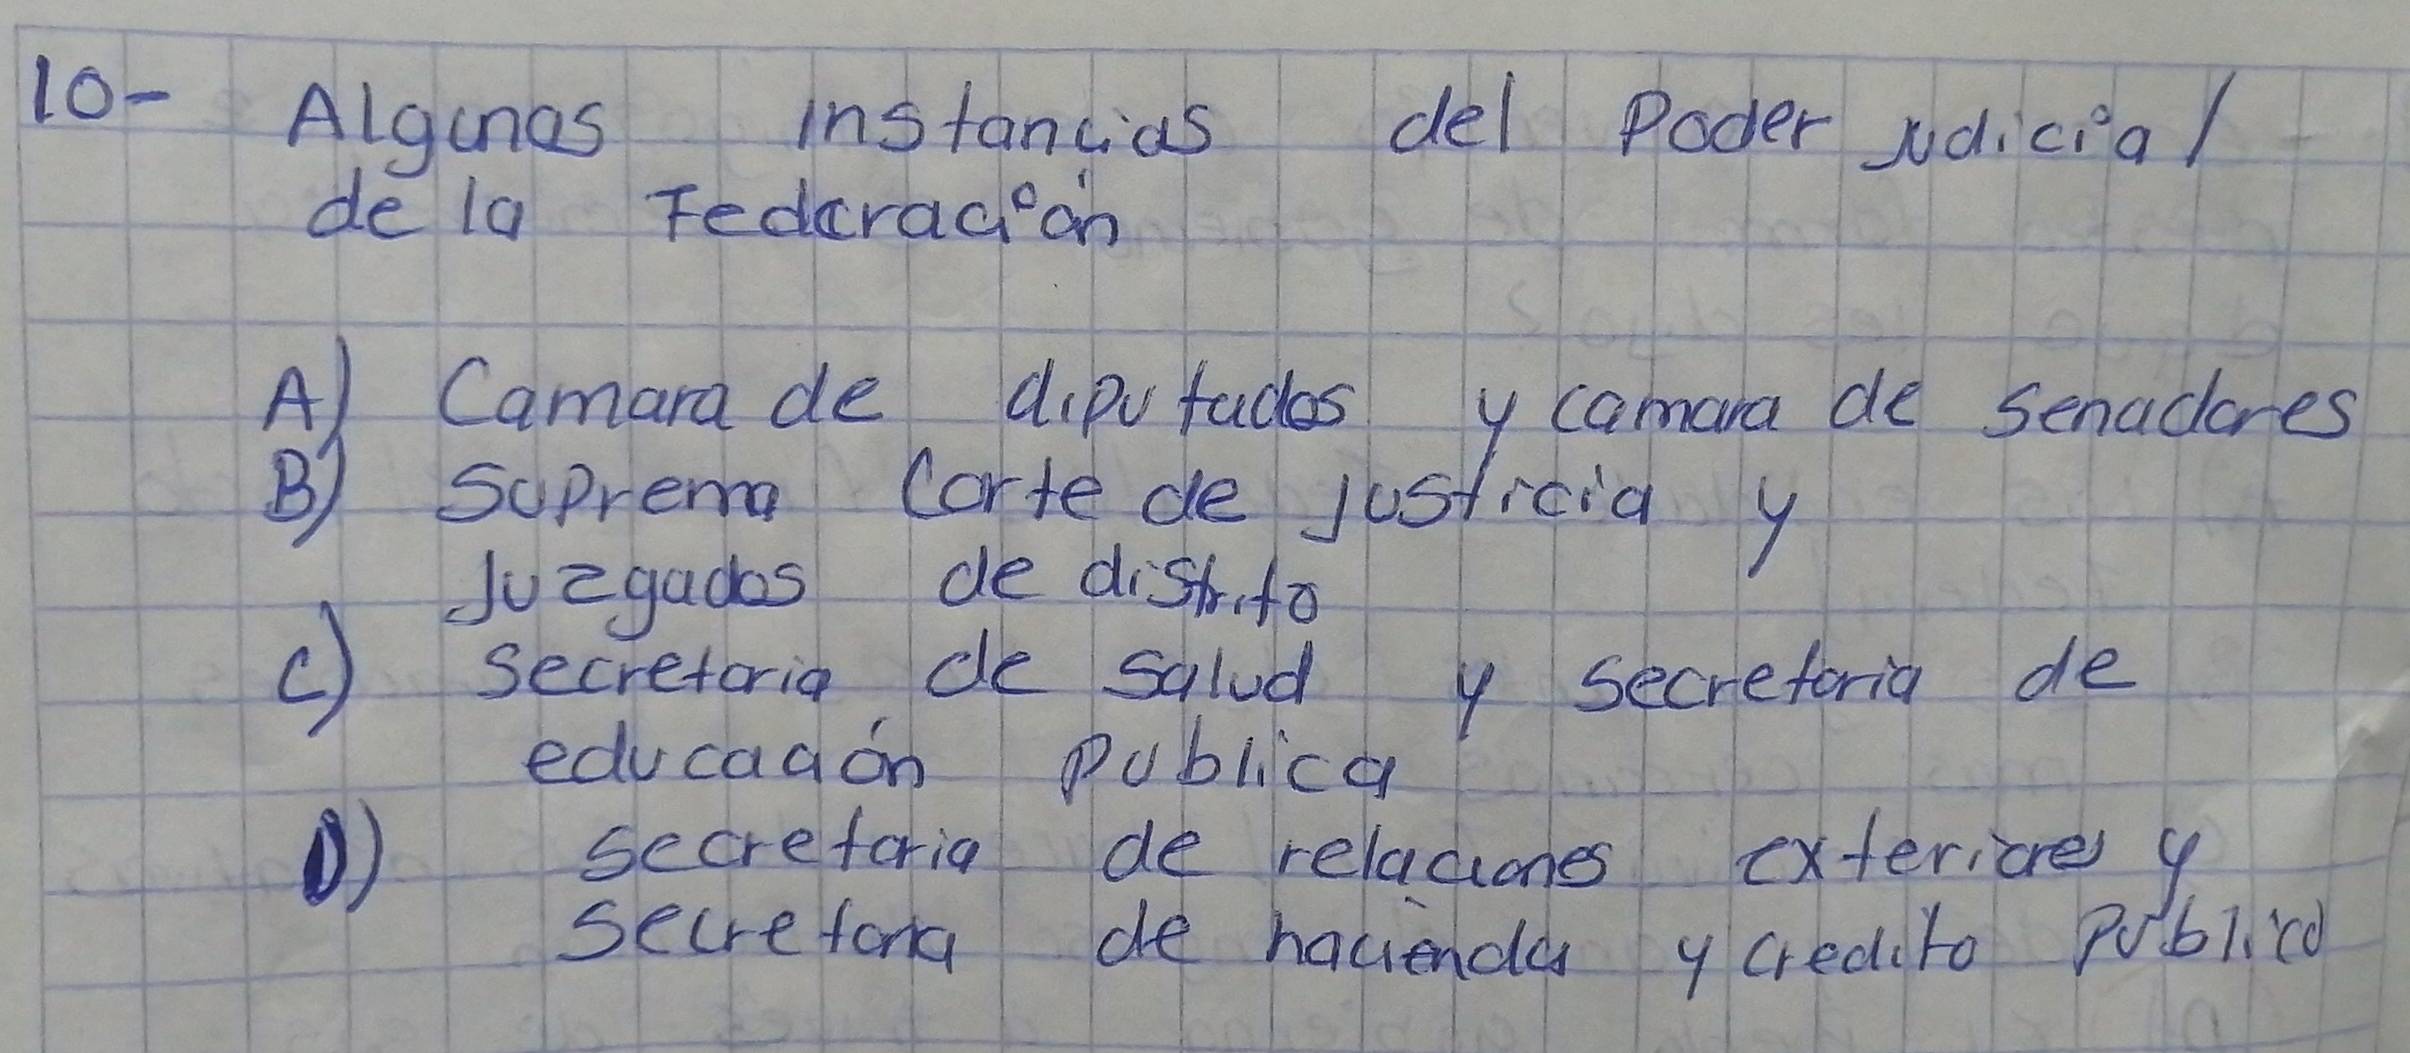 10- Algunas instancias del Poder judicial
de la Federación
A) Camara de diputados y camara de senadores
B) Suprema Corte de justicia y
Juzgados de distrito
C) secretaria de salud y secretaria de
educación publica
D) secretaria de relaciones exteriores y
secretaria de hacienda y credito publico